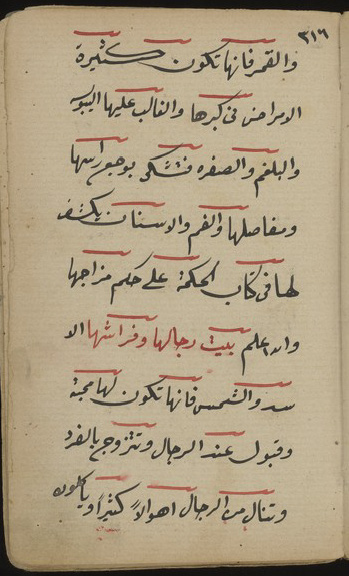 ٣١٦
والقمر فانها تكون كثيرة
الامراض في كبرها والغالب عليها اليبوسه
والبلغم والصفره فتشكي بوجع راسها
ومفاصلها والفم والاسنان يكشف
لها في كتاب الحكمة على حكم مزاجها
والله اعلم بيت رجالها وفراشها الا
سد والشمس فانها تكون لها محبة
وقبول عند الرجال وتتزوج بالفرد
وتنال من الرجال اهوالاً كثيراً ويكون